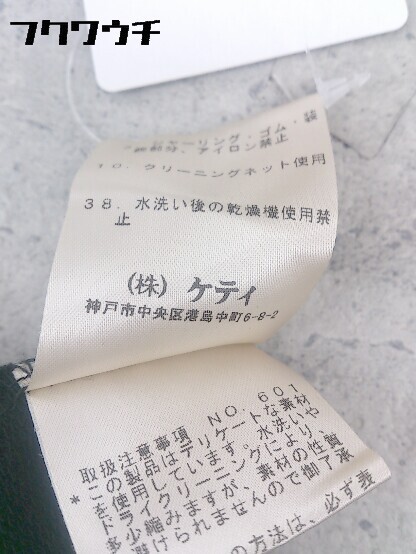 フクワウチ
シャーリング・ゴム・袋
アイロン禁止
10. クリーニングネット使用
38. 水洗い後の乾燥機使用禁
止
(株) ケティ
神戸市中央区港島中町6-8-2
取扱注意事項 NO. 601
* この製品はデリケートな素材
を使用しています。水洗いや
ドライクリーニングにより、
多少縮みますが、素材の性質
避けられませんので御了承
の方法は、必ず表